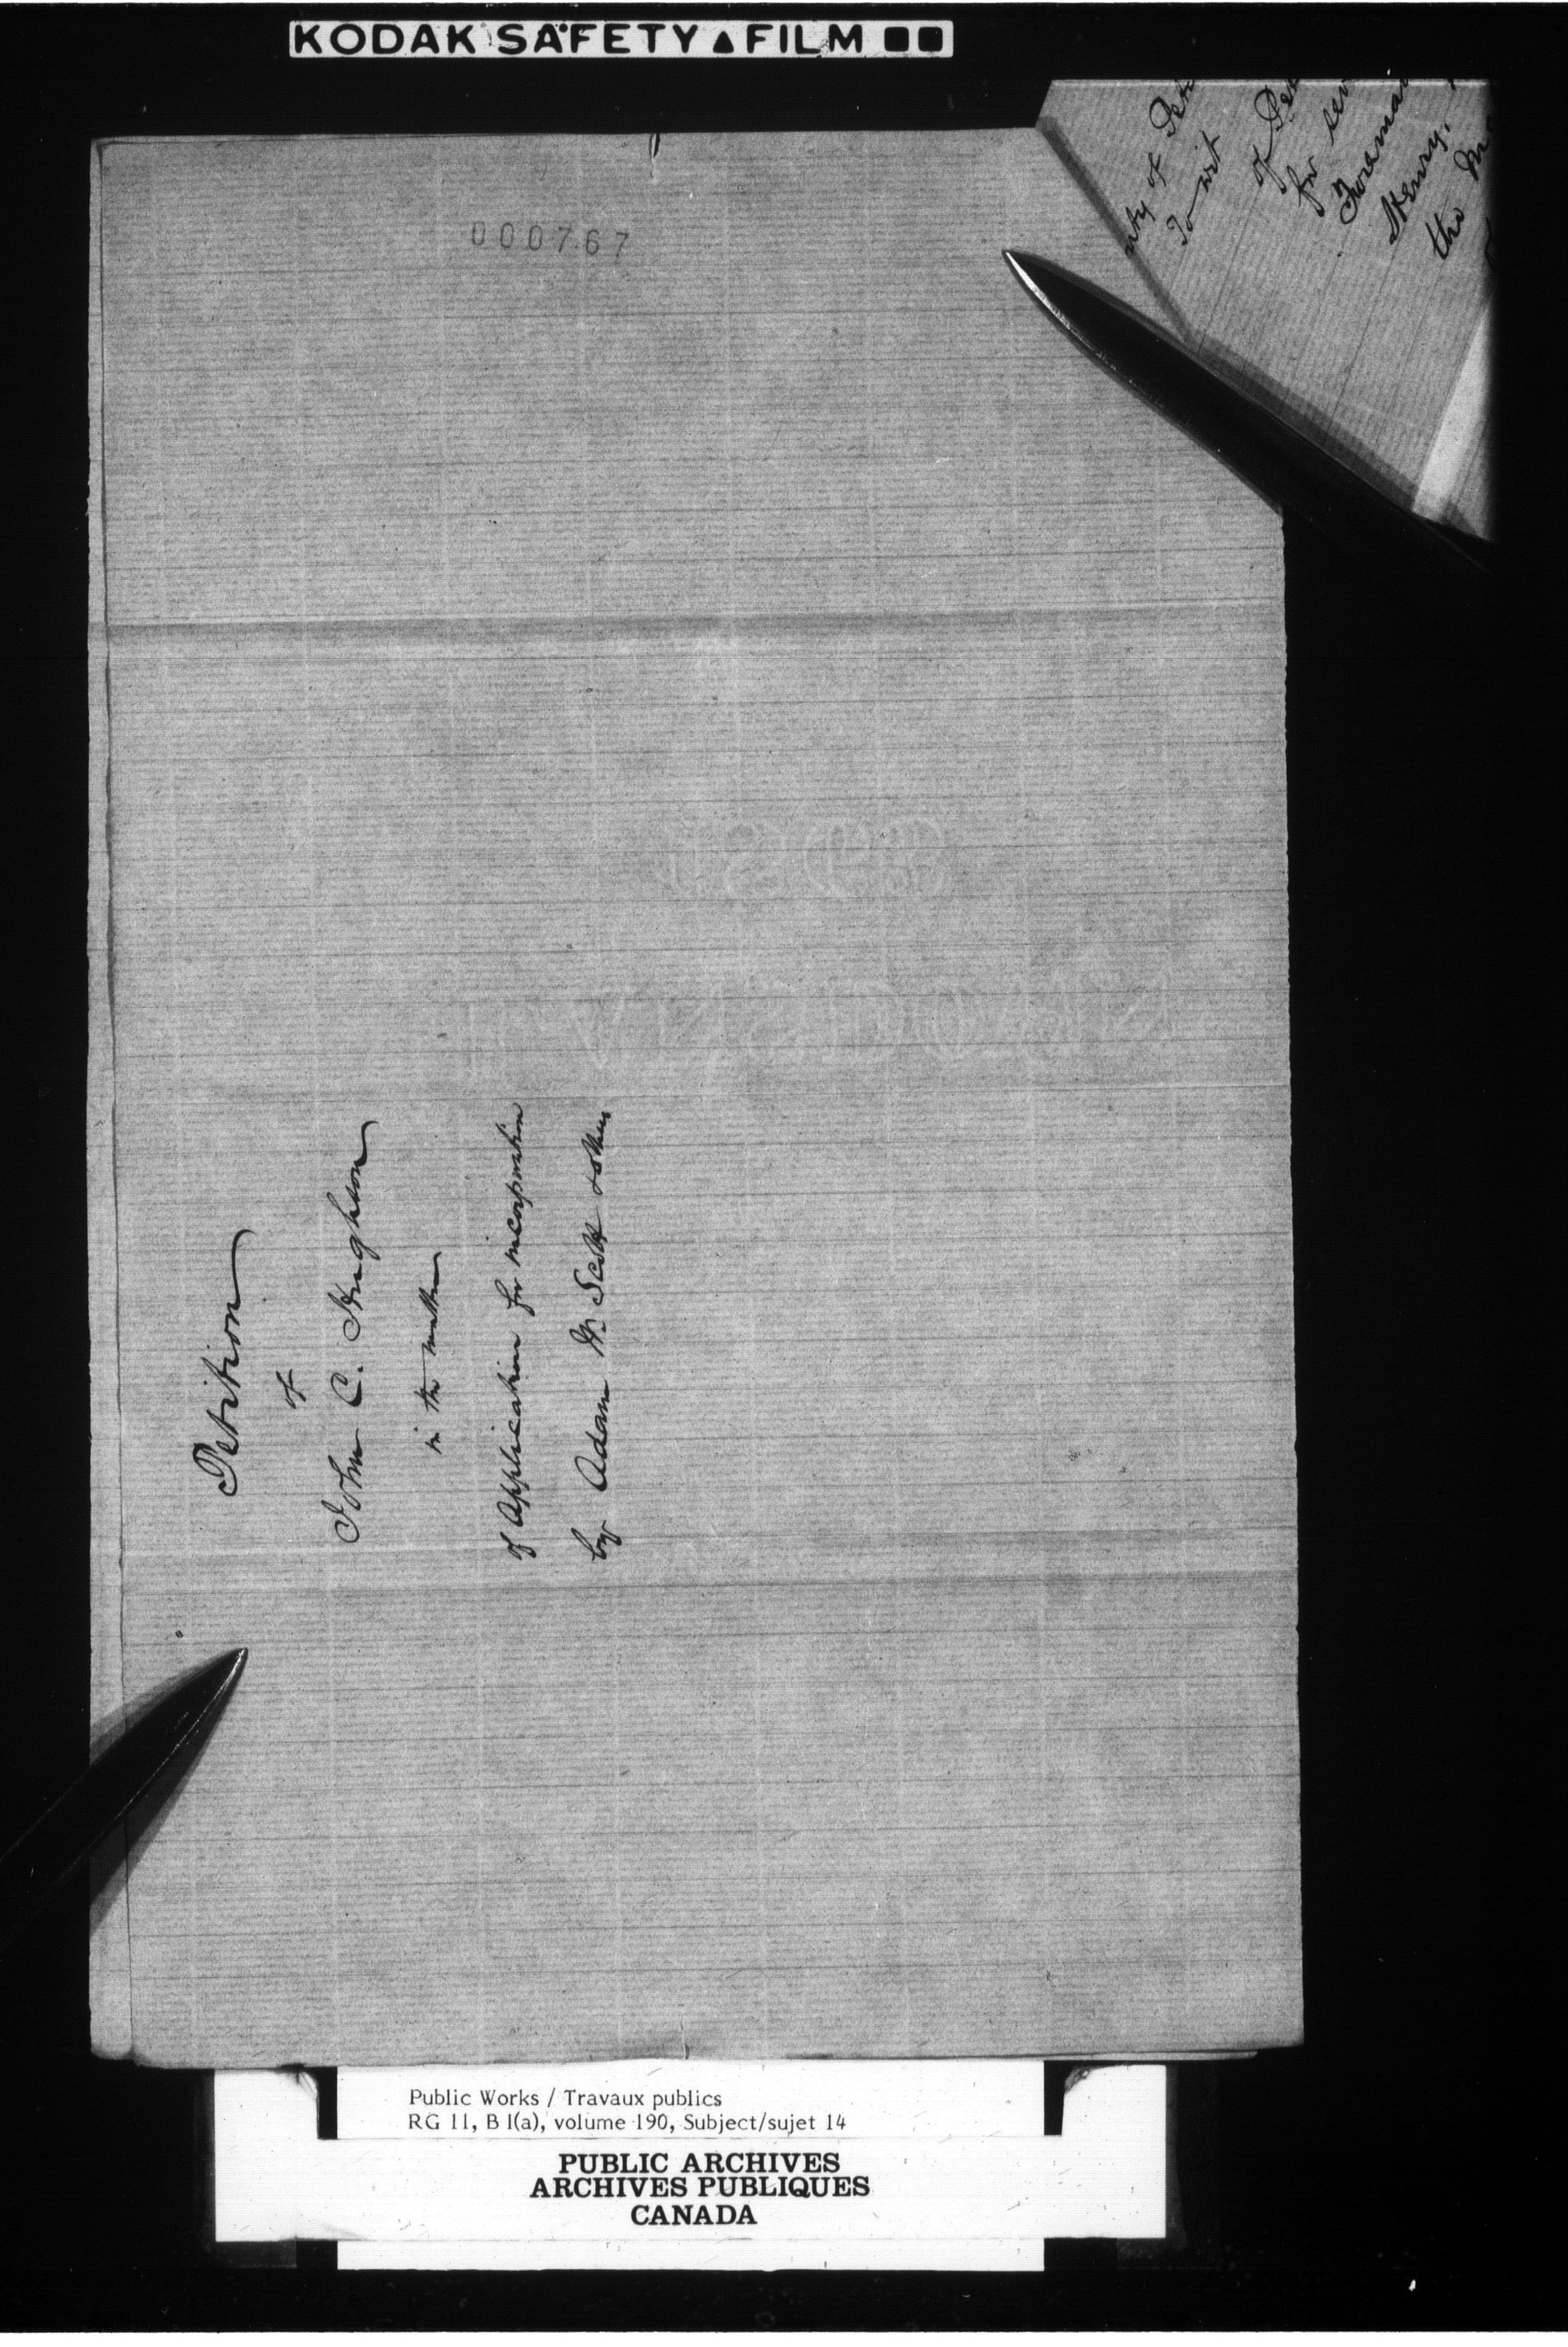 KODAK SAFETY FILM
nty of Pet
To wit
of Pet
for sev
Foreman
Henry,
the
000767
Petition
of
John C. Hughson
in the matter
of Application for incorporation
by Adam W. Scott & others
Public Works / Travaux publics
RG 11, B 1(a), volume 190, Subject/sujet 14
PUBLIC ARCHIVES
ARCHIVES PUBLIQUES
CANADA